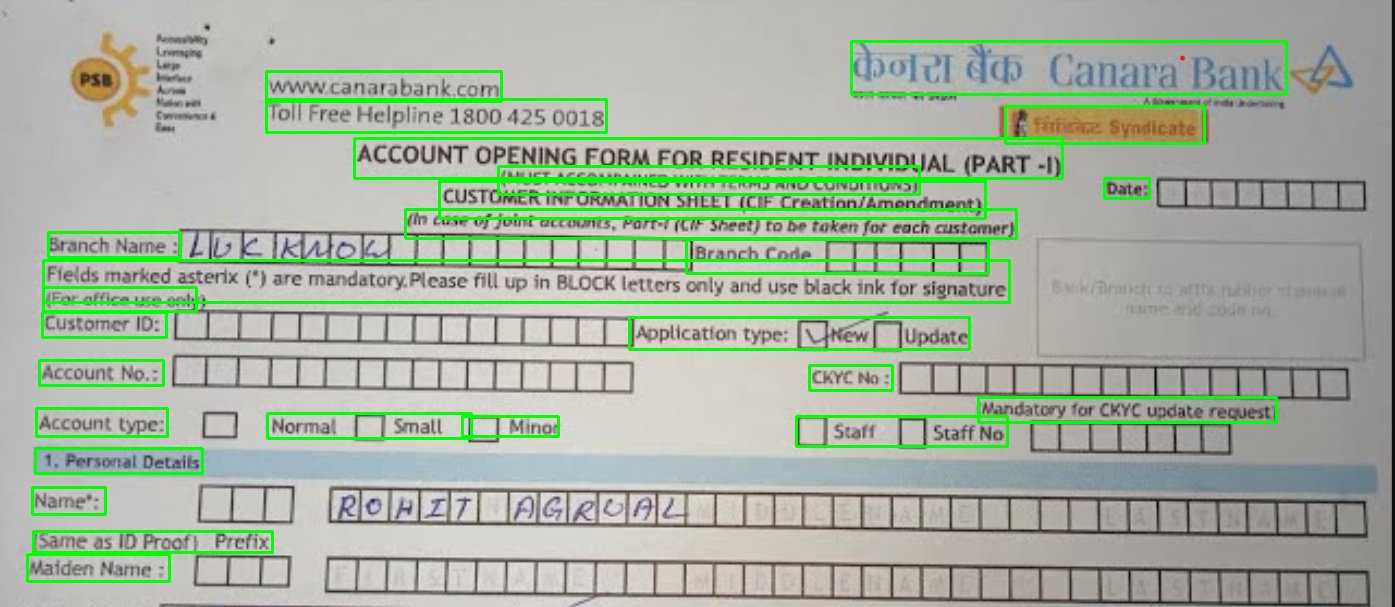 Accessibility
Leveraging
Large
Interface
Across
Nation with
Convenience &
Ease
PSB
केनरा बैंक Canara Bank
A Government of India Undertaking
www.canarabank.com
Toll Free Helpline 1800 425 0018
सिंडिकेट Syndicate
ACCOUNT OPENING FORM FOR RESIDENT INDIVIDUAL (PART -I)
(MUST ACCOMPAINED WITH TERMS AND CONDITIONS)
CUSTOMER INFORMATION SHEET (CIF Creation/Amendment)
Date:
(In case of joint accounts, Part-I (CIF Sheet) to be taken for each customer)
Branch Name : LUCKNOW Branch Code
Fields marked asterix (*) are mandatory.Please fill up in BLOCK letters only and use black ink for signature
Bank/Branch to affix rubber stamp of
name and code no.
(For office use only)
Customer ID: Application type: New Update
Account No.: CKYC No :
Mandatory for CKYC update request
Account type: Normal Small Minor Staff Staff No
1. Personal Details
Name*: ROHIT AGRUAL MIDDLENAME LASTNAME
(Same as ID Proof) Prefix
Maiden Name : FIRSTNAME MIDDLENAME LASTNAME